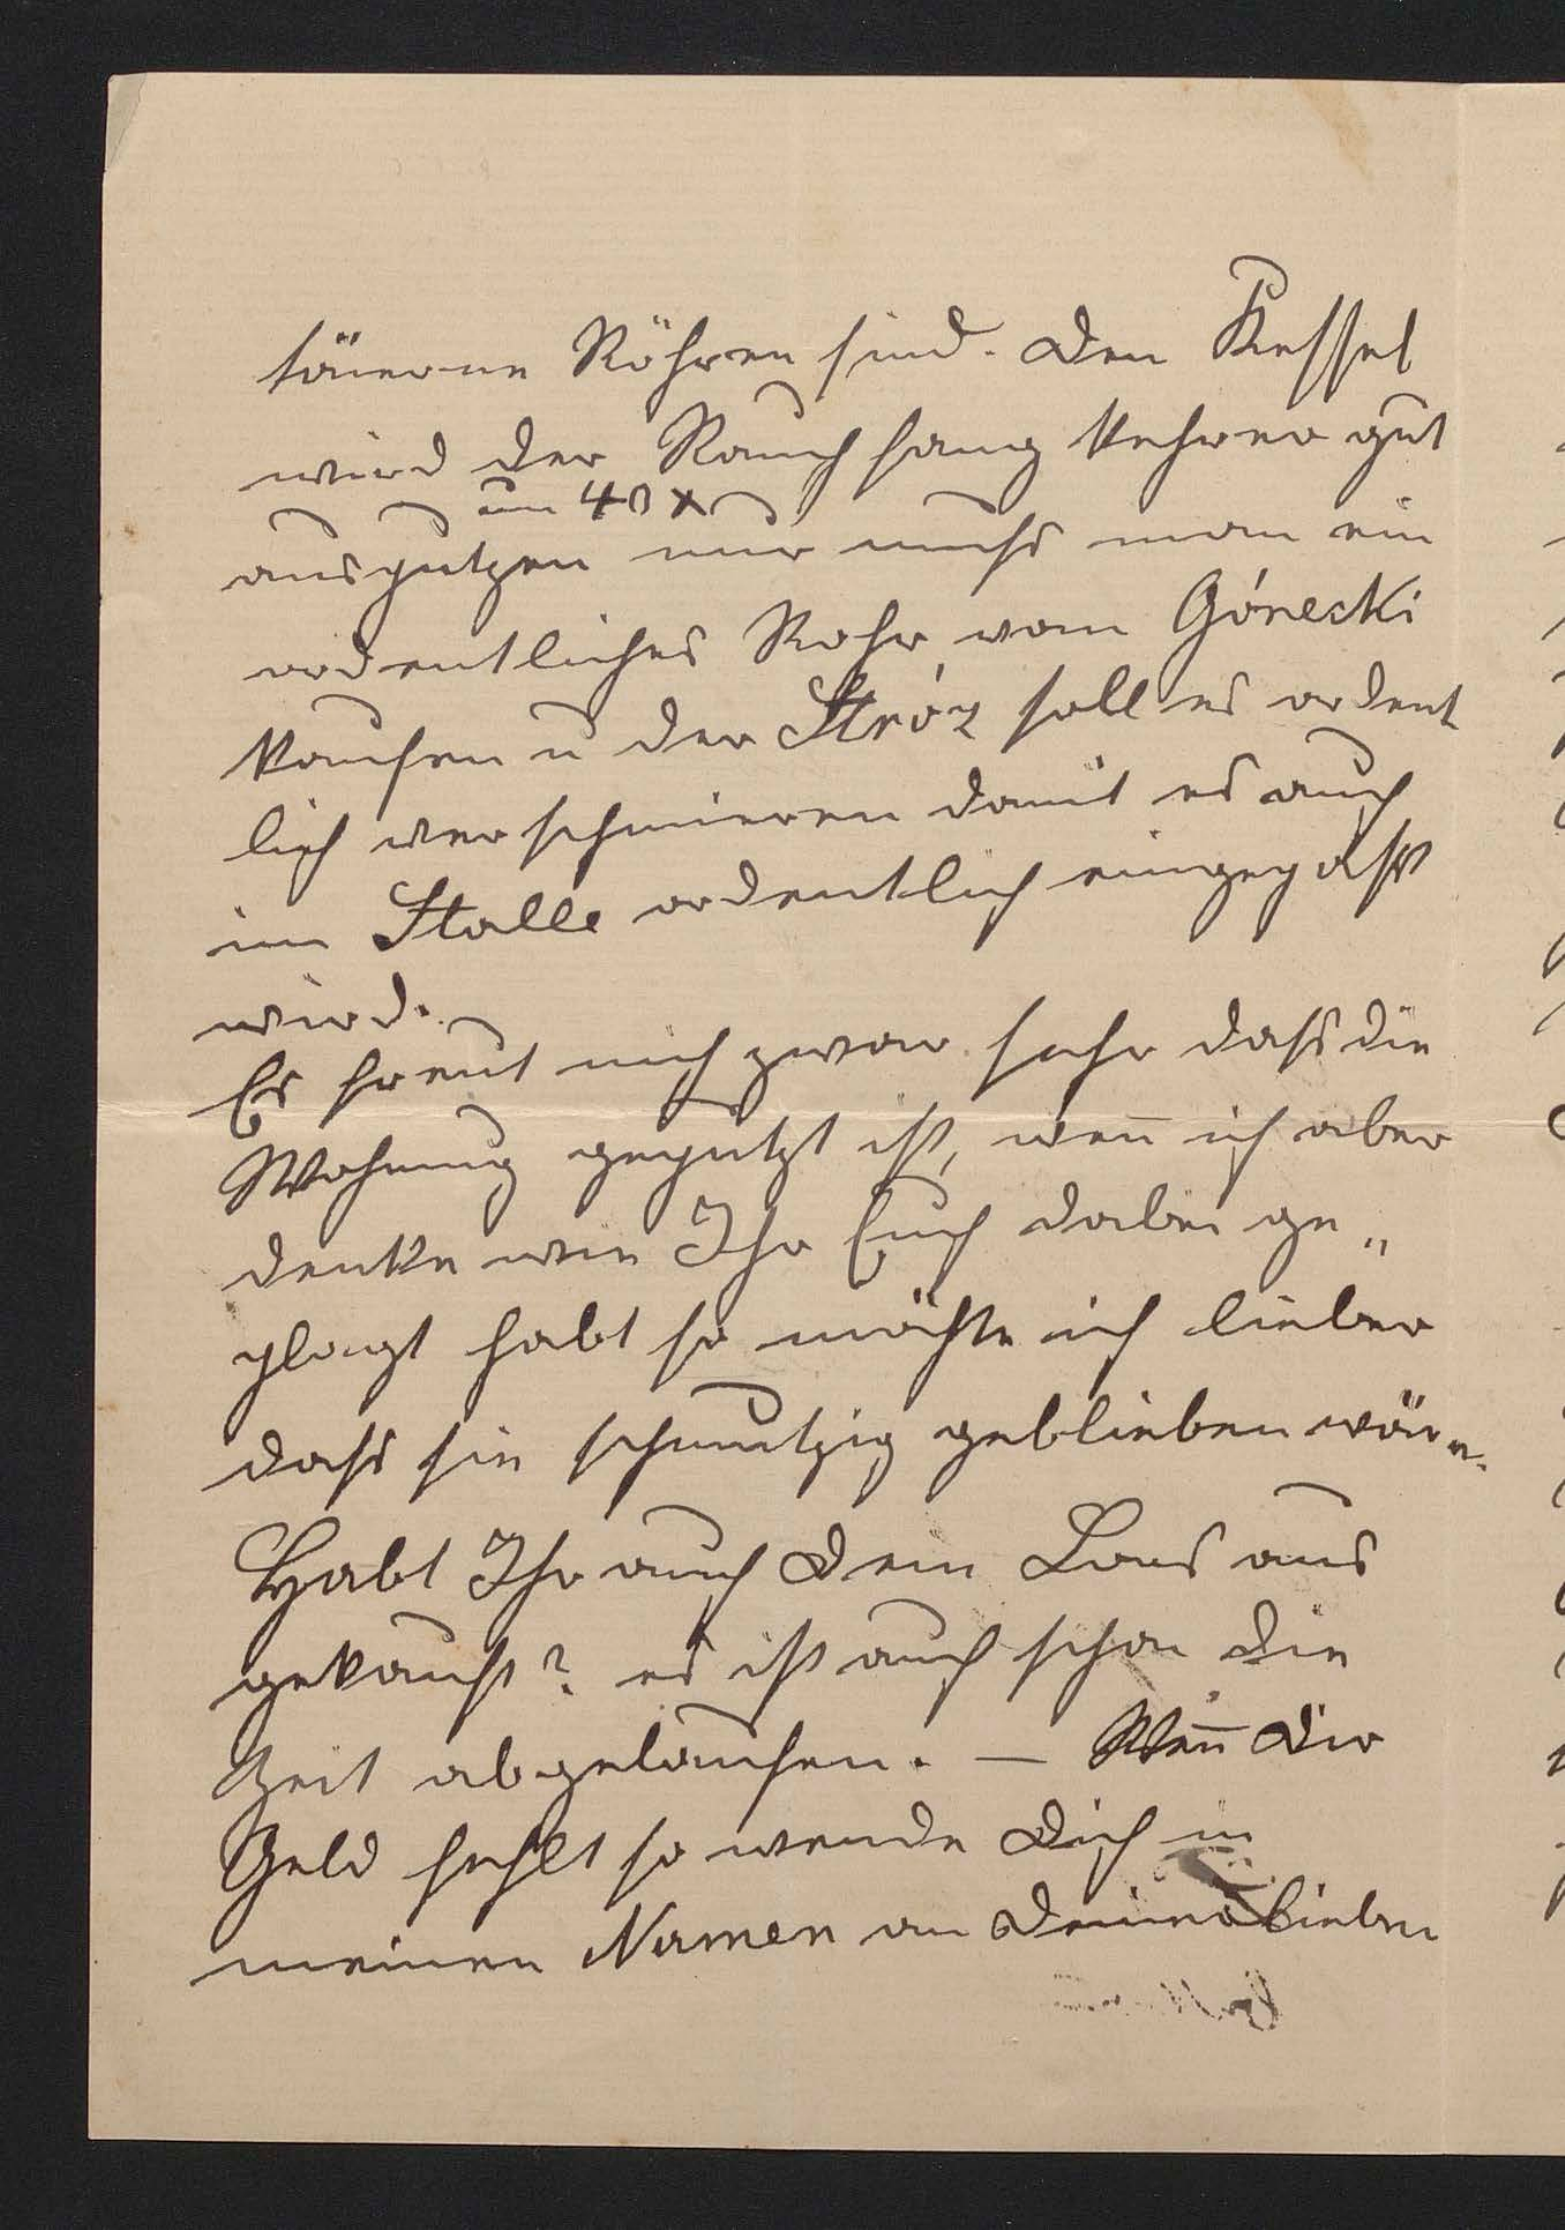 tönerne Röhren sind. Den Kessel
wird der Rauchfang Kehrer gut
um 40 x
ausputzen nur muss man ein
ordentliches Rohr vom Górecki
kaufen u der Stróz soll es ordent
lich verschmieren damit es auch
im Stalle ordentlich eingepasst
wird.
Es freut mich zwar sehr dass die
Wohnung geputzt ist, wen̄ ich aber
denke wie Ihr Euch dabei ge„
plagt habt so möchte ich lieber
dass sie schmutzig geblieben wäre.
Habt Ihr auch Dein Loos aus
gekauft? es ist auch schon die
Zeit abgelaufen. — Wen̄ Dir
Geld fehlt so wende Dich in
meinen Namen an Deine lieben